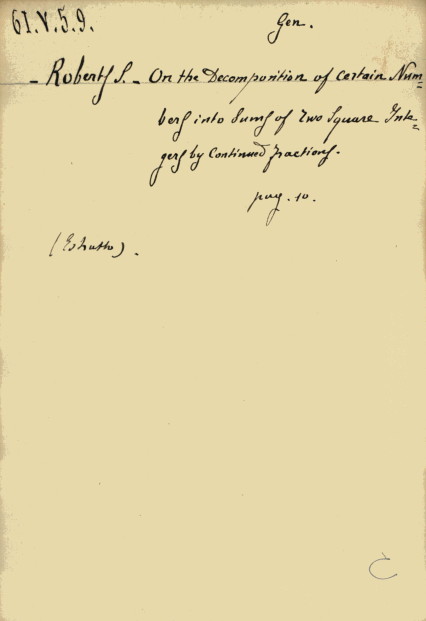 61.V.5.9.
Gen.
- Roberts S. - On the Decomposition of Certain Num=
bers into Sums of Two Square Inte=
gers by Continued Fractions.
pag. 10.
(Estratto).
C